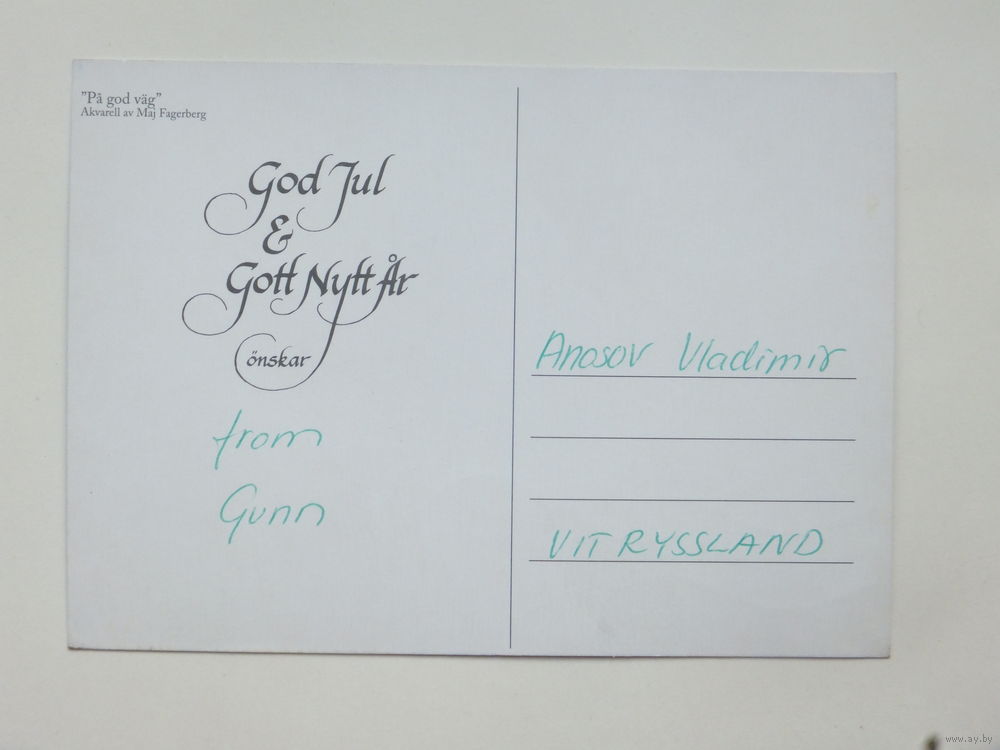 "På god väg"
Akvarell av Maj Fagerberg
God Jul
&
Gott Nytt År
önskar
from
Gunn
Anosov Vladimir
VITRYSSLAND
www.ay.by